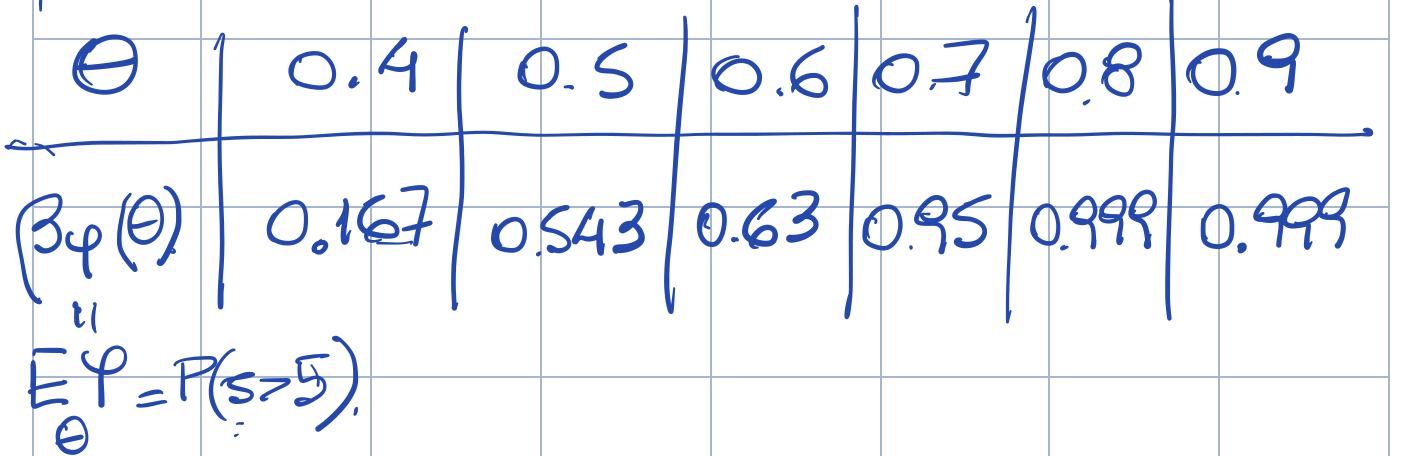 θ | 0.4 | 0.5 | 0.6 | 0.7 | 0.8 | 0.9
βφ(θ) | 0.167 | 0.543 | 0.63 | 0.95 | 0.999 | 0.999
"
Eφ = P(s>5).
θ